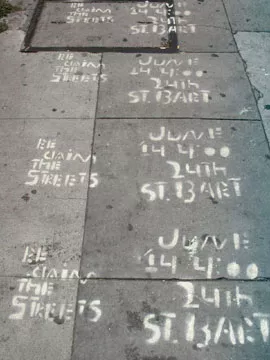 RE
CLAIM
THE
STREETS
JUNE
14 4:00
24th
ST. BART
RE
CLAIM
THE
STREETS
JUNE
14 4:00
24th
ST. BART
RE
CLAIM
THE
STREETS
JUNE
14 4:00
24th
ST. BART
RE
CLAIM
THE
STREETS
JUNE
14 4:00
24th
ST. BART